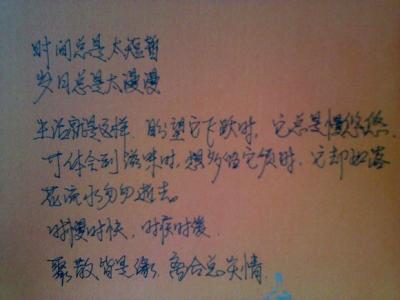 时间总是太短暂
岁月总是太漫漫
生活就是这样,盼望它飞跃时,它总是慢悠悠.
体会到滋味时,想多留它时,它却如落
花流水匆匆逝去。
时慢时快,时疾时缓.
聚散皆是缘,离合总关情.